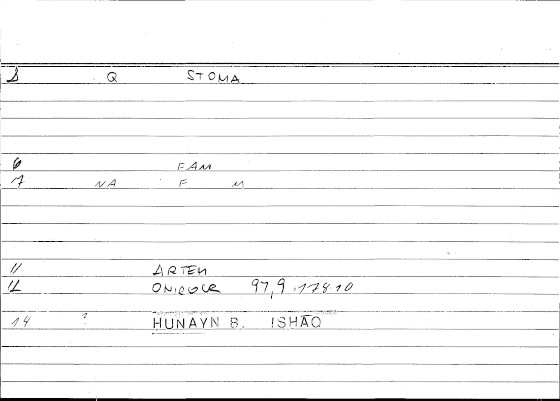 Q STOMA
6 FAM
7 NA F M
11 ARTEM
12 97,9 17810
14 ? HUNAYN B. ISHĀQ